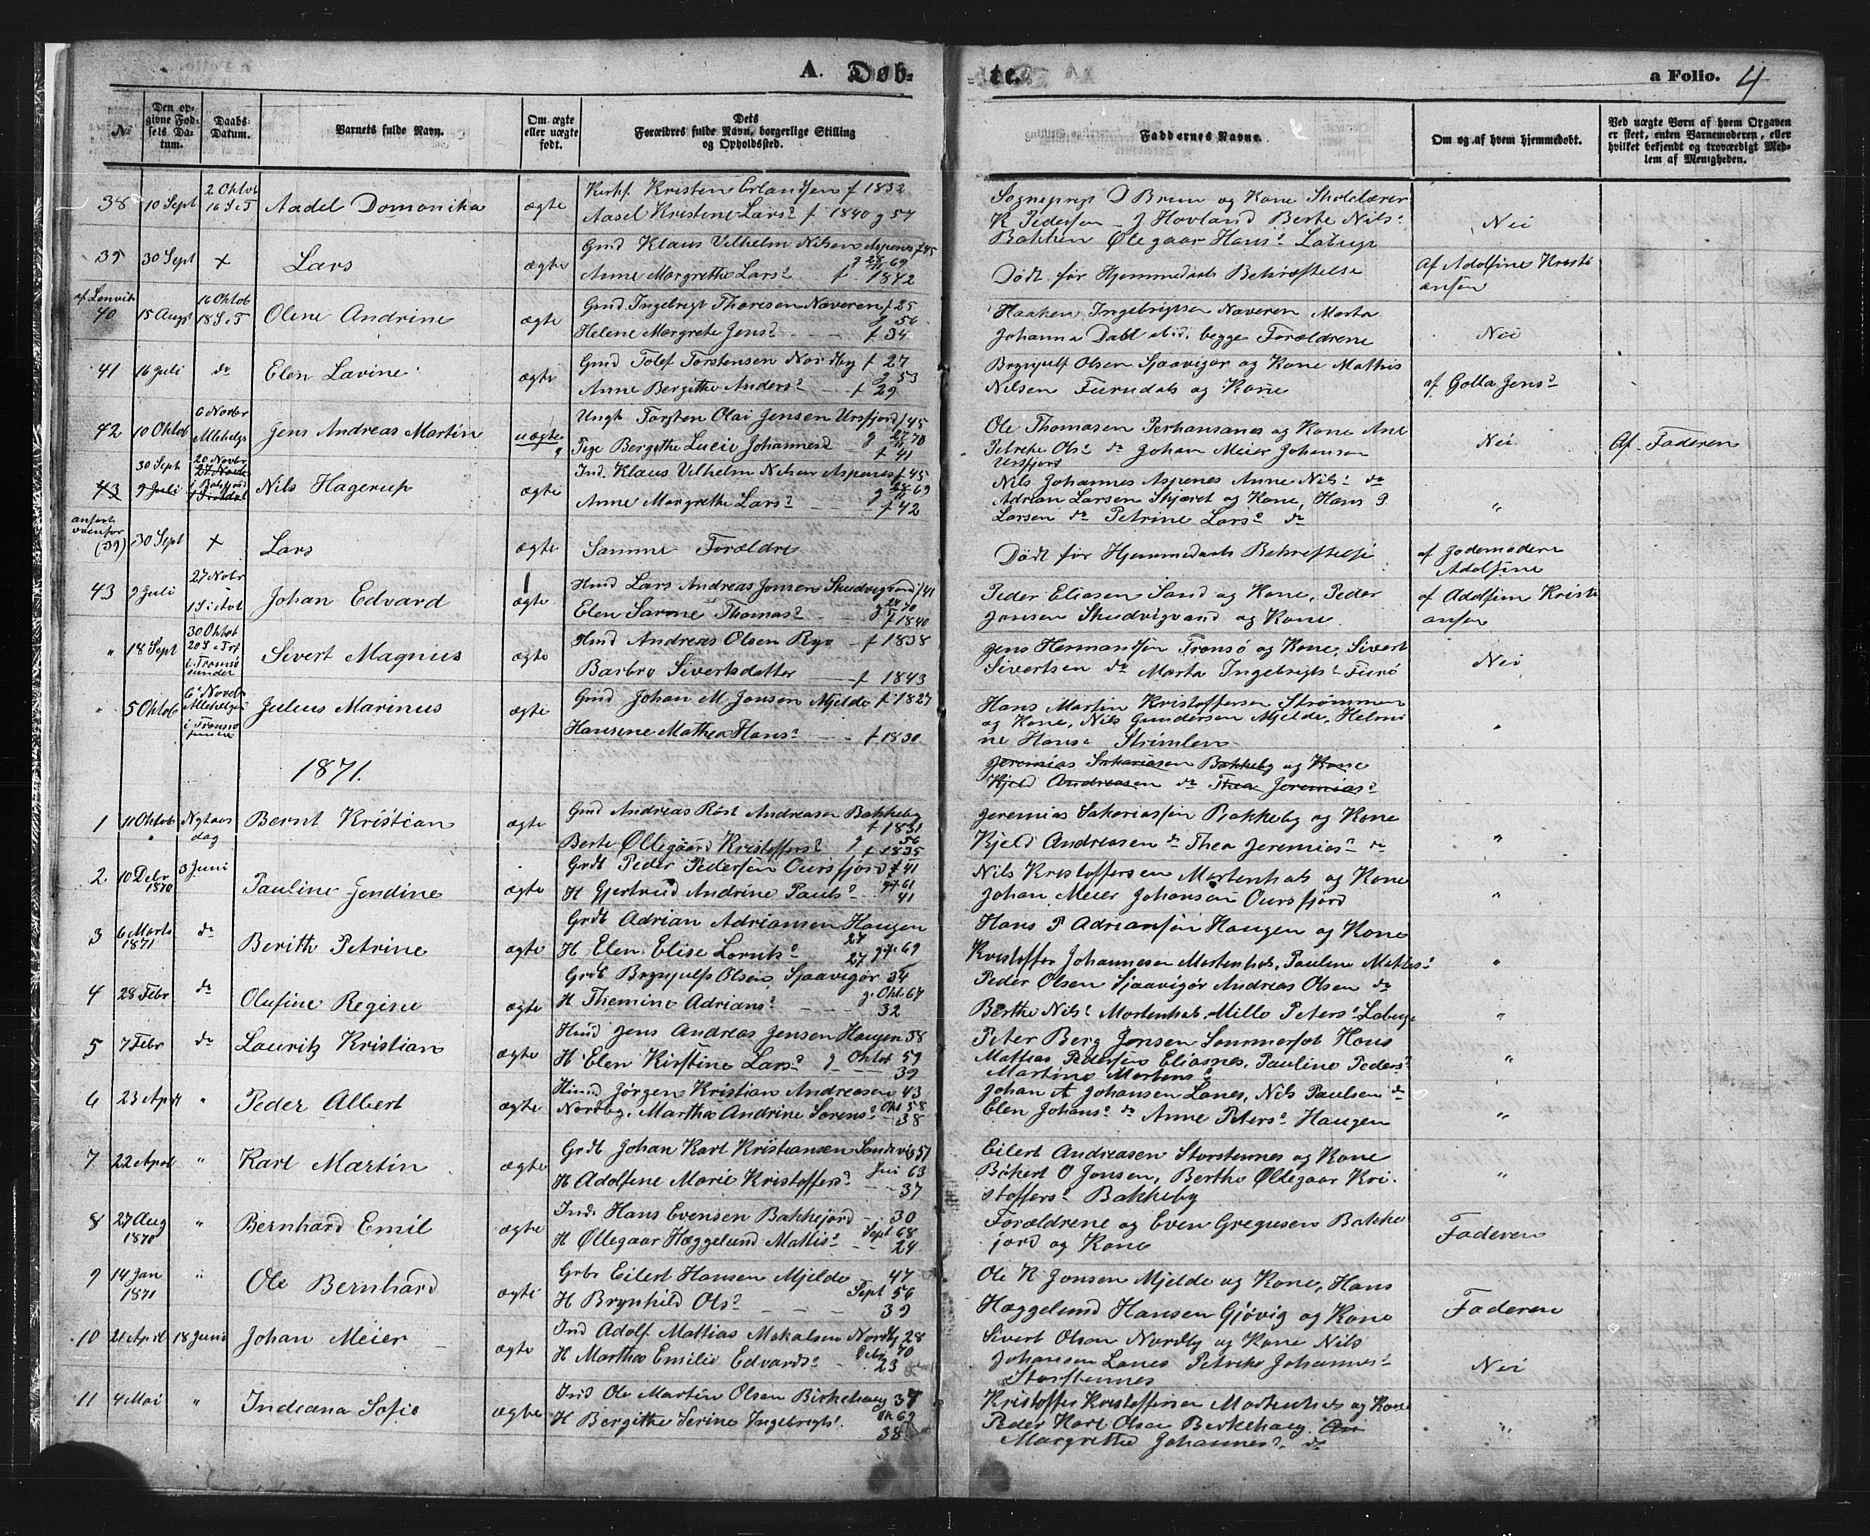 A. Døb-
te.
a Folio. 4
No
Den op-
givne Fød-
sels Da-
tum.
Daabs-
Datum.
Barnets fulde Navn.
Om ægte
eller uægte
født.
Dets
Forældres fulde Navn, borgerlige Stilling
og Opholdssted.
Faddernes Navne.
Om og af hvem hjemmedøbt.
Ved uægte Børn af hvem Opgaven
er skeet, enten Barnemoderen, eller
hvilket bekjendt og troværdigt Med-
lem af Menigheden.
38 10 Sept 2 Oktob
16 S e T
Aadel Domonika
ægte
Kristen Erlandsen f 1832
Aasel Kristene Larsd f 1840 g 57
Sognepræst O Brun og Kone Skolelærer
K Pedersen J Hovland Berte Nilsd
Bakken Ølegaar Hansd
Nei
39 30 Sept + Lars
ægte
Gmd Klaus Vilhelm Nilsen Aspenes f 45
g 28/11 69
Anne Margrethe Larsd f 1842
Dødt før Hjemmedaabs Bekræftelse
Af Adolfine Kristi
ansen
af Lenvik
40 15 Augst 16 Oktob
18 S e T
Olene Andrine
ægte
Gmd Ingebrigt Thoresen Næveren f 25
g 56
Helene Margrete Jensd f 34
Haaken Ingebrigtsen Næveren Marta
Johanna Dahl ibid. begge Forældrene
Nei
41 16 Juli do Elen Lavine
ægte
Gmd Tolef Torstensen Nordby f 27
g 53
Anne Bergitte Andersd f 29
Brynjulf Olsen Sjaavigor og Kone Mathis
Nilsen Furudal og Kone
af Golla Jensd
42 10 Oktob 6 Novbr
Allehelg
Jens Andreas Martin
uægte
Ungk Torsten Olai Jensen Ursfjord f 45
g 27/11 70
Pige Bergithe Lucie Johannesd f 41
Ole Thomasen Perhansanes og Kone Ane
Petrike Olsd do Johan Meier Johansen
Ursfjord
Nei
Af Faderen
43 30 Sept
9 Juli
20 Novbr
27 Novbr
i Balsfjord
Nils Hagerup
ægte
Ind. Klaus Vilhelm Nilsen Aspenes f 45
g 28/11 69
Anne Margrethe Larsd f 42
Nils Johannes Aspenes Anne Nilsd do
Adrian Larsen Skjæret og Kone, Hans P
Larsen do Petrine Larsd do
"
anført
ovenfor
(39) 30 Sept + Lars
ægte
Samme Forældre
Dødt før Hjemmedaabs Bekræftelse
af Jodemodere
Adolfine
43 9 Juli 27 Nobr
1 S i Avt
Johan Edvard
ægte
Hmd Lars Andreas Jonsen Skudvigvand f 41
g 70
Elen Sarene Thomasd f 1840
Peder Eliasen Sand og Kone, Peder
Jonsen Skudvigvand og Kone.
af Adolfine Kristi
ansen
" 18 Sept 30 Oktob
20 S e Trf
i Tromsø
sundet
Sivert Magnus
ægte
Hmd Andreas Olsen Ryø f 1838
Barbro Sivertsdatter f 1843
Jens Hermansen Tromsø og Kone, Sivert
Sivertsen do Marta Ingebrigtsd Furø
Nei
" 5 Oktob 6 Novbr
Allehelgen
i Tromsø
Julius Marinus
ægte
Gmd Johan M Jonsen Mjelde f 1827
Hansene Mathea Hansd f 1830
Hans Martin Kristoffersen Strømmen
og Kone, Nils Gundersen Mjelde, Helmi
ne Hansd Strimlen
"
1871.
Jeremias Sakariasen Bakkeby og Kone
Kjeld Andreasen do Thea Jeremiasd
1 11 Oktob
"
Nytaars
dag
Bernt Kristian
ægte
Gmd Andreas Röst Andreasen Bakkeby
f 1831
Berte Øllegaard Kristoffersd g 56
f 1835
Jeremias Sakariassen Bakkeby og Kone
Kjeld Andreasen do Thea Jeremiasd do
"
2 10 Debr
1870
3 Juni
Pauline Jendine
ægte
Grdt Peder Pedersen Oursfjord f 41
H Gjertrud Andrine Paulsd gift 61
41
Nils Kristoffersen Mortenhals og Kone
Johan Meier Johansen Oursfjord
"
3 6 Marts
1871
do
Berithe Petrine
ægte
Grdt Adrian Adriansen Haugen
27
H Elen Elise Lorntsd gift 69
27
Hans P Adriansen Haugen og Kone
Kristoffer Johannesen Mortenhals, Pauline Mathisd
"
4 28 Febr do Olufine Regine
ægte
Grdt Brynjulf Olsen Sjaavigor 34
g Okt. 67
H Themine Adriansd 32
Peder Olsen Sjaavigør Andreas Olsen do
Berthe Nilsd Mortenhals, Mille Petersd
"
5 7 Febr do Lauritz Kristian
ægte
Hmd Jens Andreas Jensen Haugen 38
H Elen Kirstine Larsd g Oktob 59
39
Peter Berg Jonsen Sommerset Hans
Mathias Pedersen Eliasnes, Pauline Pedersd
Martine Mortensd
"
6 23 April " Peder Albert
ægte
Hmd Jørgen Kristian Andreasen 43
Nordby, Martha Andrine Sørensd Okt 58
38
Johan A Johansen Lanes, Nils Paulsen do
Elen Johansd do Anne Petersd Haugen
"
7 22 April " Karl Martin
ægte
Grdt Johan Karl Kristiansen Sandvig 37
Juni 63
H Adolfine Marie Kristoffersd 37
Eilert Andreasen Storstennes og Kone
Bøkert O Jonsen, Berthe Øllegaar Kri-
stoffersd Bakkeby
"
8 27 Aug
1870
" Bernhard Emil
ægte
Inds Hans Evensen Bakkejord 30
Sept 68
H Øllegaar Hæggelund Mattisd 24
Forældrene og Even Gregusen Bakke
jord og Kone
Faderen
9 14 Jan
1871
" Ole Bernhard
ægte
Grbr Eilert Hansen Mjelde 47
Sept 56
H Brynhild Olsd 39
Ole K Jonsen Mjelde og Kone, Hans
Hæggelund Hansen Gjøvig og Kone
Faderen
10 21 April 18 Juni Johan Meier
ægte
Ind Adolf Mattias Mikalsen Nordby 28
Debr 70
H Martha Emilie Edvardsd 23
Sivert Olsen Nordby og Kone Nils
Johansen Lanes Petrike Johannesd
Storstennes
Nei
11 4 Mai " Indiana Sofie
ægte
Ind Ole Martin Olsen Birkehaug 37
Ok 62
H Bergithe Serine Ingebrigtsd 38
Kristoffer Kristoffersen Mortenhals og Kone
Peder Karl Olsen Birkehaug
Margrethe Johannesd do
"